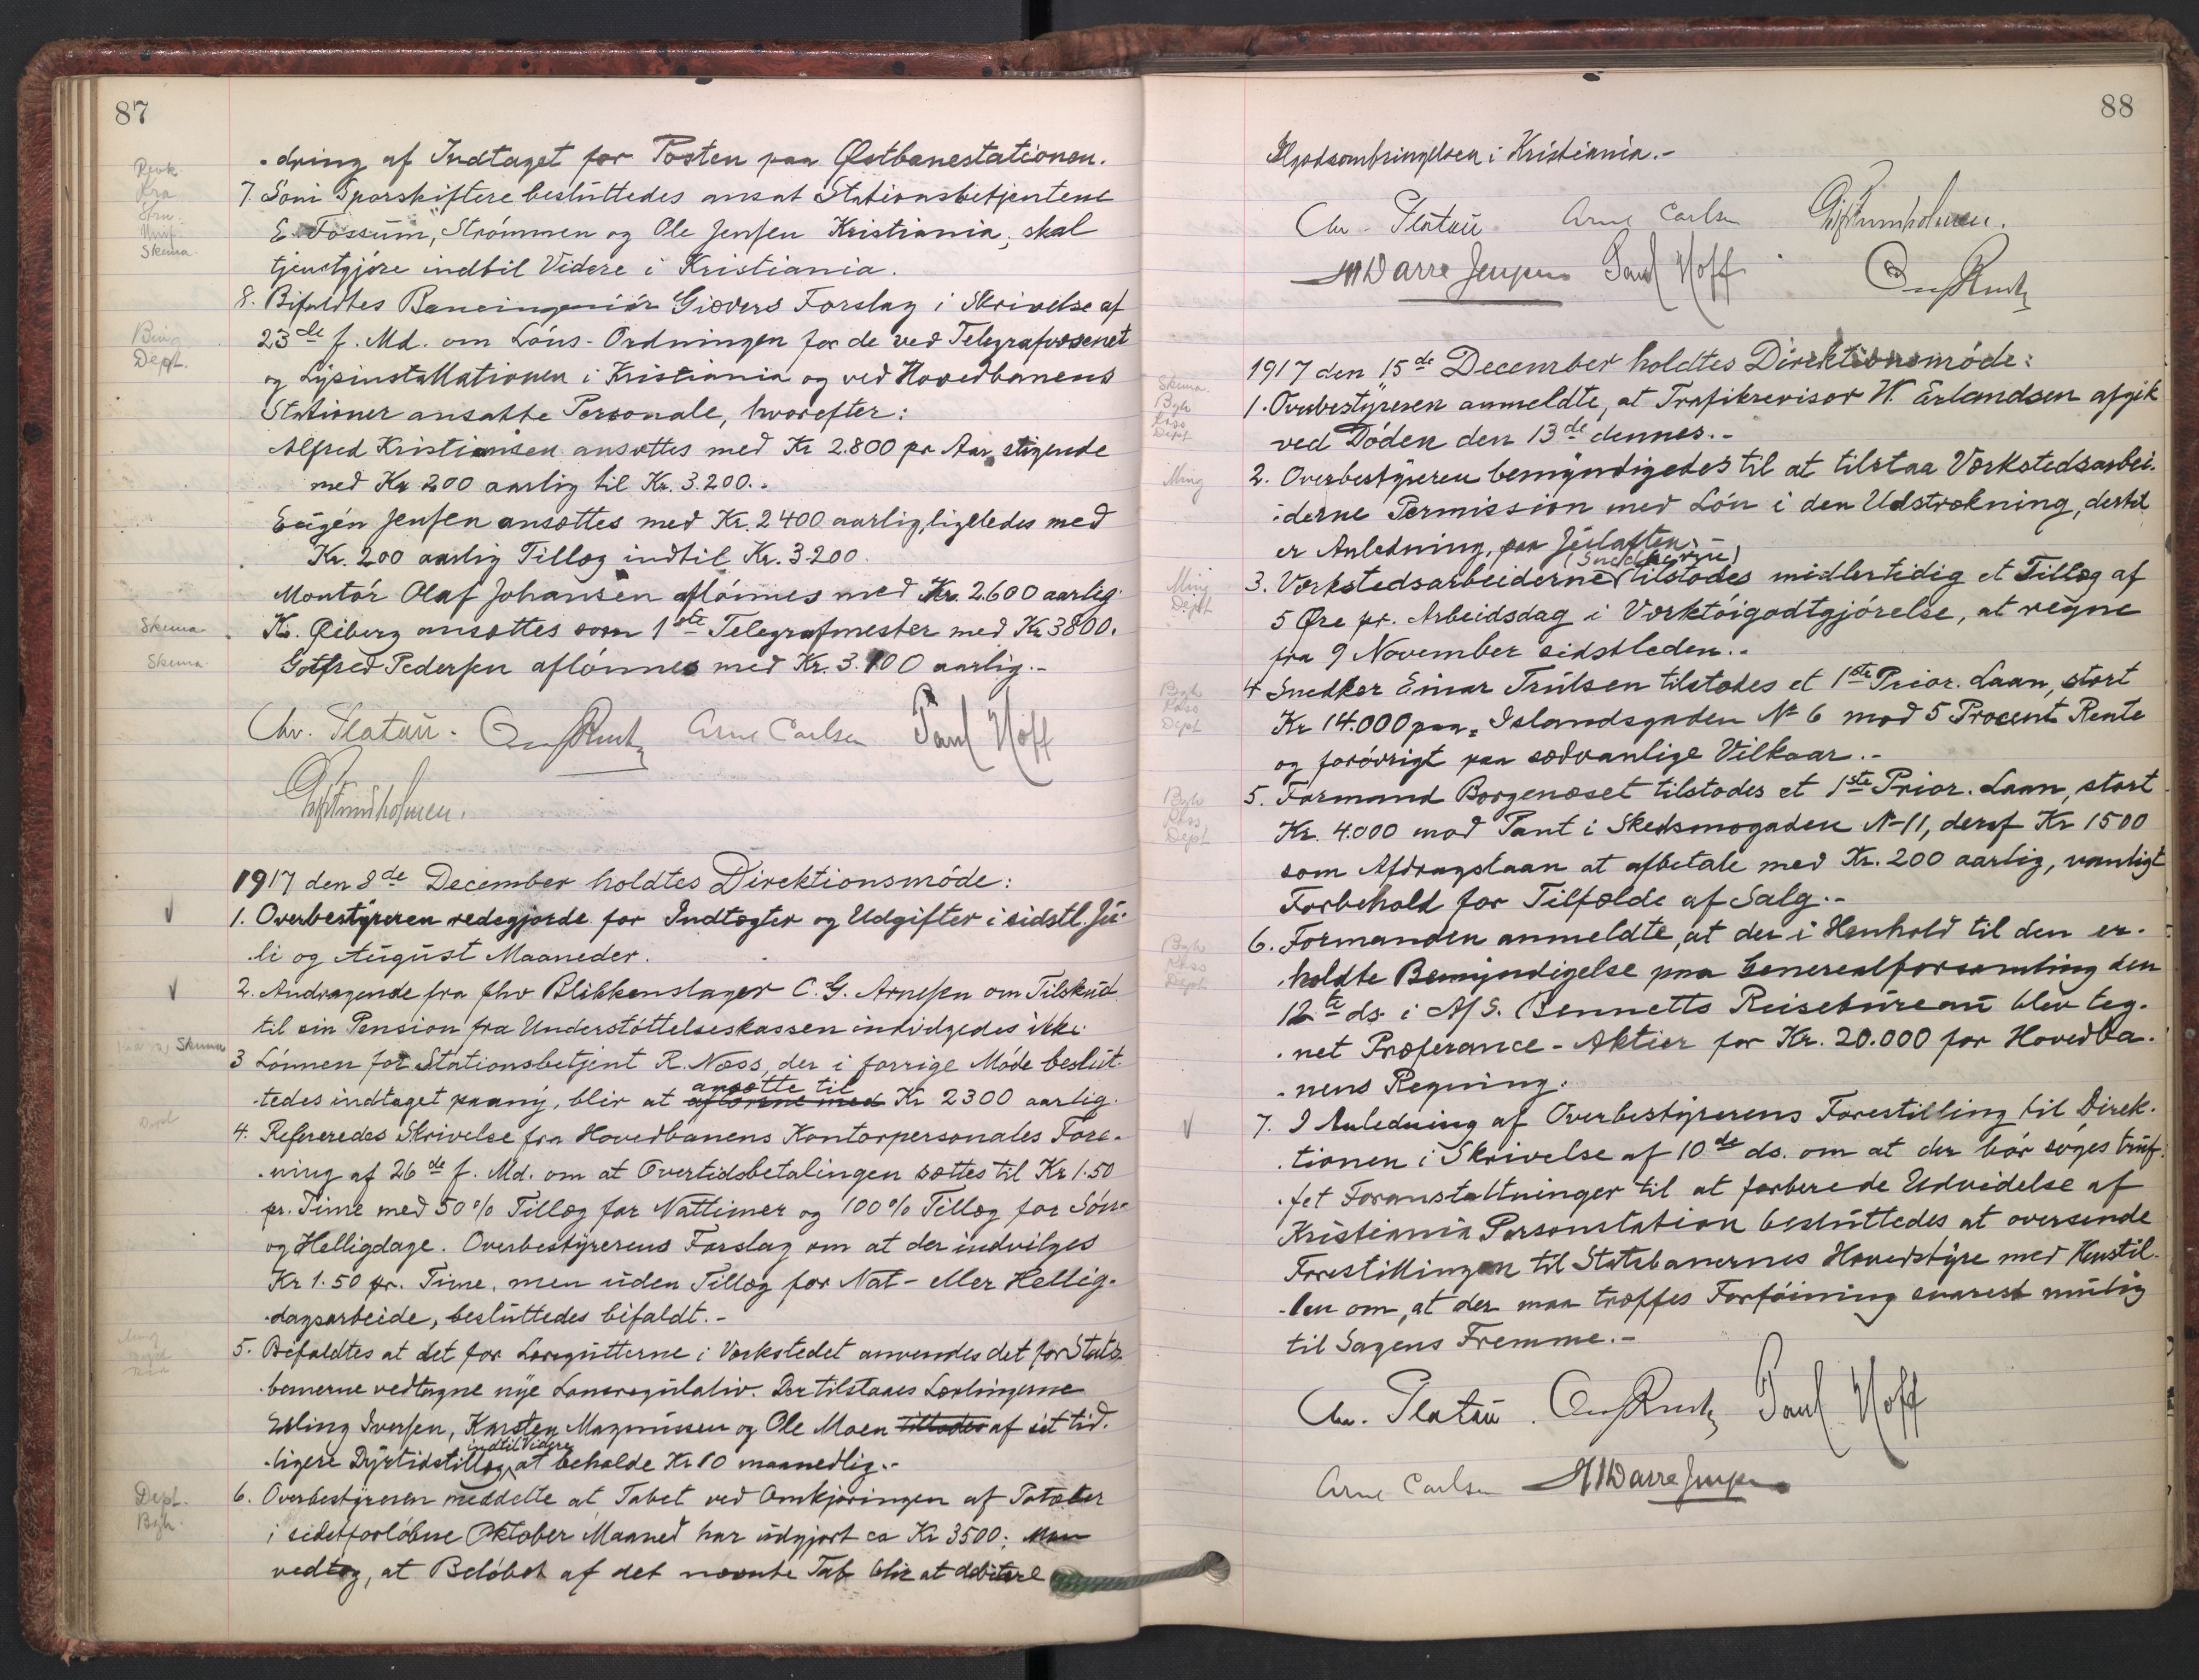 87
·dring af Indtaget for Posten paa Østbanestationen.
7. Som Sporskiftere besluttedes ansat Stationsbetjentene
E. Fossum, Strømmen og Ole Jensen Kristiania, skal
tjenstgjøre indtil Videre i Kristiania.
Skema.
8. Bifaldtes Baneingeniør Giævers Forslag i Skrivelse af
23de f. Md. om Løns-Ordningen for de ved Telegrafvæsenet
og Lysinstallationen i Kristiania og ved Hovedbanens
Stationer ansatte Personale, hvorefter:
Bing
Dept.
Alfred Kristiansen ansættes med Kr 2.800 pr Aar, stigende
med Kr 200 aarlig til Kr. 3.200.-
Eugén Jensen ansættes med Kr. 2400 aarlig, ligeledes med
Kr. 200 aarlig Tillæg indtil Kr. 3.200.
Montør Olaf Johansen aflønnes med Kr. 2.600 aarlig.
Kr. Øiberg ansættes som 1ste Telegrafmester med Kr 3800.
Skema
Gotfred Pedersen aflønnes med Kr. 3.100 aarlig.-
Skema
Chr. Platou. Arne Carlsen Paul Hoff
1917 den 8de December holdtes Direktionsmøde:
1. Overbestyreren redegjorde for Indtægter og Udgifter i sidstl. Ju-
·li og August Maaneder.
2. Andragende fra fhv Blikkenslager C. G. Arnesen om Tilskud
til sin Pension fra Understøttelseskassen indvilgedes ikke.
Skema
3 Lønnen for Stationsbetjent R. Næss, der i forrige Møde beslut-
ansætte til
·tedes indtaget paany, blir at aflønne med Kr 2300 aarlig.
Dept
4. Refereredes Skrivelse fra Hovedbanens Kontorpersonales Fore-
·ning af 26de f. Md. om at Overtidsbetalingen sættes til Kr 1.50
pr. Time med 50% Tillæg for Nattimer og 100% Tillæg for Søn-
og Helligdage. Overbestyrerens Forslag om at der indvilges
Kr 1.50 pr. Time, men uden Tillæg for Nat- eller Hellig-
·dagsarbeide, besluttedes bifaldt.-
5. Bifaldtes at det for Læregutterne i Verkstedet anvendes det for Stats-
·banerne vedtagne nye Lønsregulativ. Der tilstaaes Lærlingerne
Erling Iversen, Karsten Magnussen og Ole Moen tillades af sit tid-
indtil Videre
·ligere Dyrtidstillæg, at beholde Kr 10 maanedlig.-
Dept.
Bgh.
6. Overbestyreren meddelte at Tabet ved Omkjøringen af Poteter
i sidstforløbne Oktober Maaned har udgjort ca Kr 3500; Man
vedtog, at Beløbet af det nævnte Tab blir at debitere
88
Ilgodsombringelsen i Kristiania.-
Chr. Platou Arne Carlsen
M Darre Jensen Paul Hoff
1917 den 15de December holdtes Direktionsmøde:
Skema.
Bgh
Kass
Dept
1. Overbestyreren anmeldte, at Trafikrevisor W. Erlandsen afgik
ved Døden den 13de dennes.-
Ming
2. Overbestyreren bemyndigedes til at tilstaa Værkstedsarbei-
·derne Permission med Løn i den Udstrækning, dertil
er Anledning, paa Juleaften.-
(Snedkerne)
Ming
Dept
3. Værkstedsarbeiderne tilstodes midlertidig et Tillæg af
5 Øre pr. Arbeidsdag i Værktøigodtgjørelse, at regne
fra 9 November sidstleden.-
Bgh
Kass
Dept
4 Snedker Einar Trulsen tilstodes et 1ste Prior. Laan, stort
Kr 14.000 paa Islandsgaden No 6 mod 5 Procent Rente
og forøvrigt paa sædvanlige Vilkaar.-
Bgh
Kass
Dept
5. Formand Borgenæset tilstodes et 1ste Prior. Laan, stort
Kr. 4.000 mod Pant i Skedsmogaden No 11, deraf Kr 1500
som Afdragslaan at afbetale med Kr. 200 aarlig, vanligt
Forbehold for Tilfælde af Salg.-
Bgh
Kass
Dept
6. Formanden anmeldte, at der i Henhold til den er-
·holdte Bemyndigelse paa Generalforsamling den
12te ds. i A/S. Bennetts Reisebureau blev teg-
·net Præferance-Aktier for Kr. 20.000 for Hovedba-
·nens Regning.
7. I Anledning af Overbestyrerens Forestilling til Direk-
·tionen i Skrivelse af 10de ds. om at der bør søges truf-
·fet Foranstaltninger til at forberede Udvidelse af
Kristiania Personstation besluttedes at oversende
Forestillingen til Statsbanernes Hovedstyre med Henstil-
·len om, at der maa træffes Forføining snarest mulig
til Sagens Fremme.-
Chr. Platou. Paul Hoff
Arne Carlsen M Darre Jensen